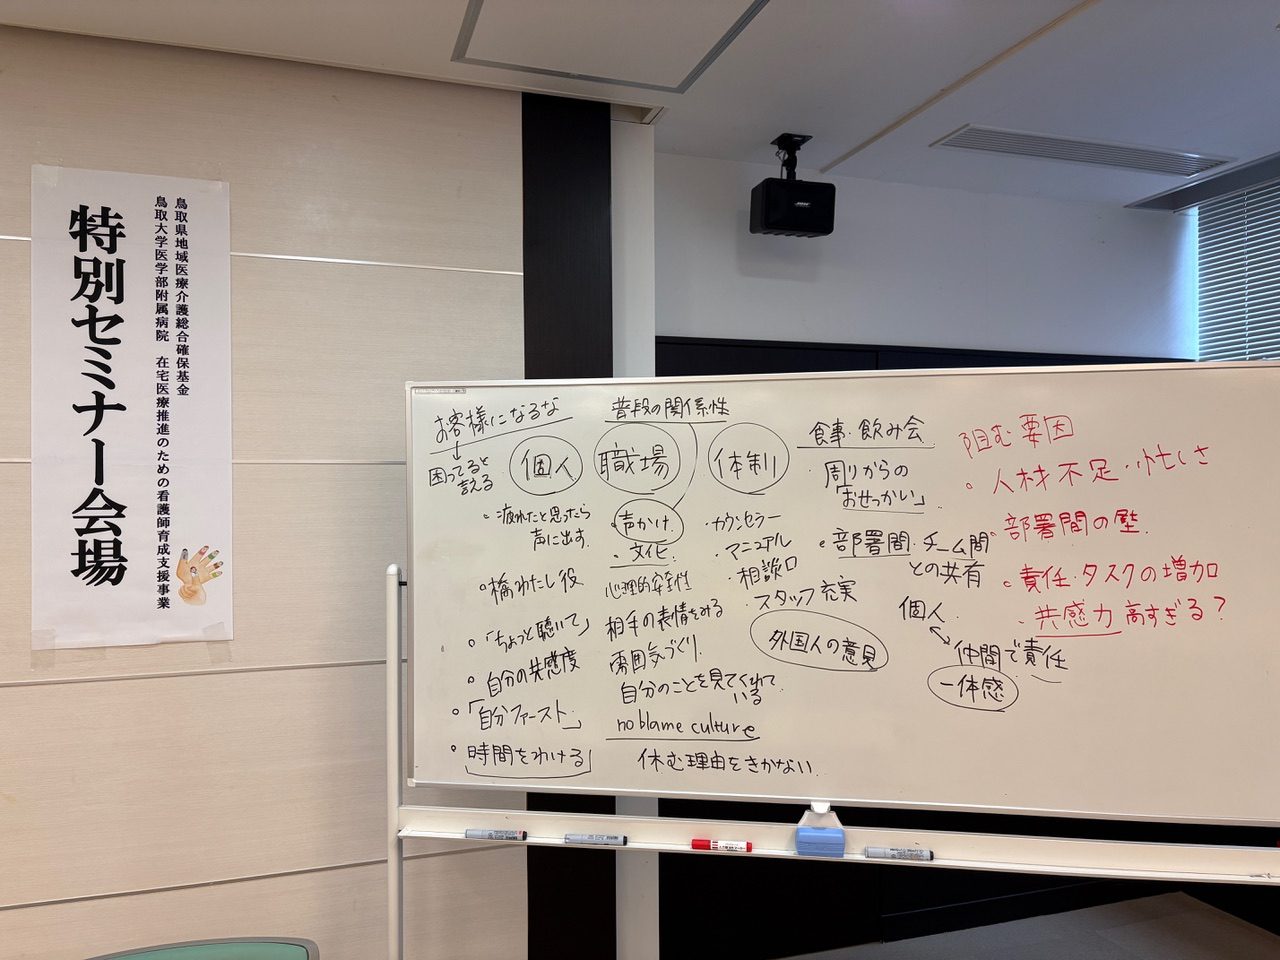 鳥取県地域医療介護総合確保基金
鳥取大学医学部附属病院 在宅医療推進のための看護師育成支援事業
特別セミナー会場
BOSE
お客様になるな
困ってると
言える
個人
・疲れたと思ったら
声に出す
・橋わたし役
・「ちょっと聴いて」
・自分の共感度
・「自分ファースト」
・時間をわける」
普段の関係性
職場
・声かけ
・文化
心理的安全性
相手の表情をみる
雰囲気づくり
自分のことを見てくれて
いる
no blame culture
休む理由をきかない
体制
・カウンセラー
・マニュアル
・相談口
・スタッフ充実
外国人の意見
食事・飲み会
周りからの
「おせっかい」
・部署間・チーム間
との共有
個人
仲間で責任
一体感
阻む要因
・人材不足・忙しさ
・部署間の壁
・責任・タスクの増加
・共感力高すぎる?